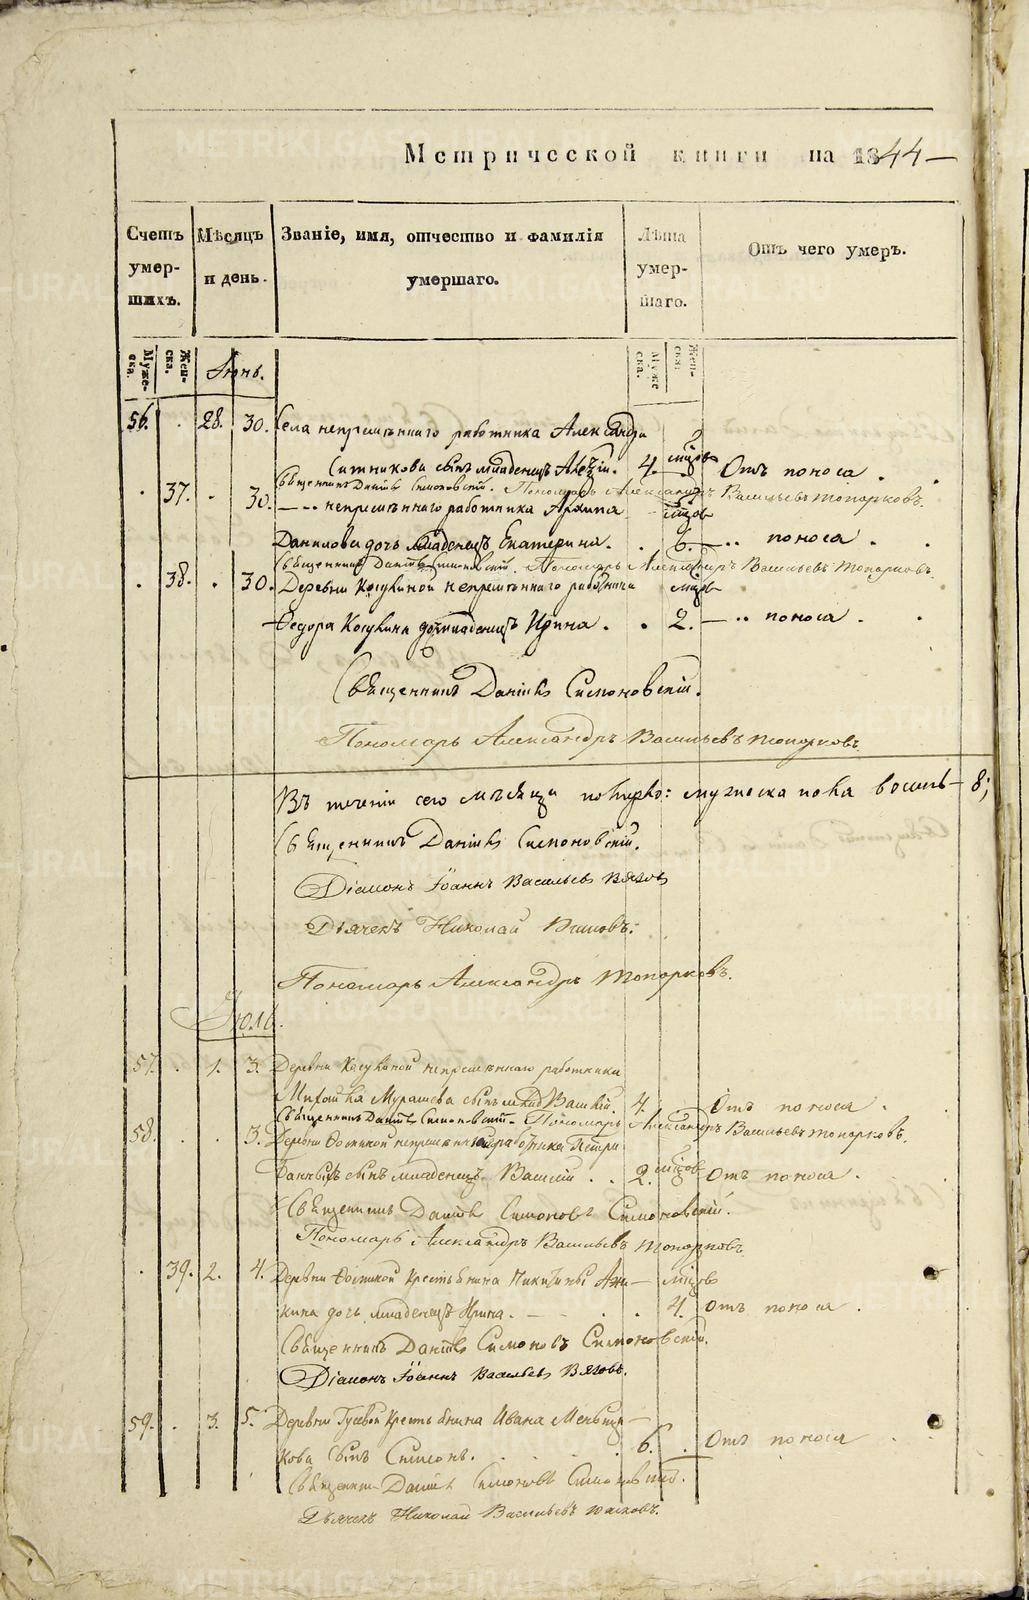 Метрической книги на 1844
Счетъ умер- шихъ.
Мѣсяцъ и день.
Званіе, имя, отчество и фамилія умершаго.
Лѣта умер- шаго.
Отъ чего умеръ.
Муже- ска.
Жен- ска.
Іюнь.
Муже ска.
Жен- ска.
56. . 28. 30. Села непремѣннаго работника Александра
Ситникова сынъ младенецъ 4. мцовъ Отъ поноса .
Священникъ Даніилъ Симоновскій. Пономарь Александръ Васильевъ Топорковъ.
. 37. . 30. — „ непремѣннаго работника Архипа мцов
Данилова дочь младенецъ Екатерина. . 6. — „ поноса .
Священникъ Даніилъ Симоновскій. Пономарь Александръ Васильевъ Топорковъ.
. 38. . 30. Деревни непремѣннаго работника мцов
Ѳедора дочь младенецъ Ирина . . 2. — „ поноса .
Священникъ Даніилъ Симоновскій.
Пономарь Александръ Васильевъ Топорковъ.
Въ теченіи сего мѣсяца мужеска пола восемь — 8;
Священникъ Даніилъ Симоновскій.
Діаконъ Іоаннъ Васильевъ Вязовъ
Дьячекъ Николай
Пономарь Александръ Топорковъ.
Іюль.
57. . 1. 3. Деревни непремѣннаго работника
Мурашева сынъ 4. Отъ поноса .
Священникъ Даніилъ Симоновскій. Пономарь Александръ Васильевъ Топорковъ.
58. . . 3. Деревни непремѣннаго работника Петра
сынъ младенецъ . . 2. мцов Отъ поноса .
Священникъ Даніилъ Симоновъ Симоновскій.
Пономарь Александръ Васильевъ Топорковъ.
. 39. 2. 4. Деревни крестьянина Никиты Ани— мцов
кина дочь младенецъ Ирина. — . . 4. Отъ поноса .
Священникъ Даніилъ Симоновъ Симоновскій.
Діаконъ Іоаннъ Васильевъ Вязовъ.
59. . 3. 5. Деревни Гусевой крестьянина Ивана Меньщи—
кова сынъ Симеонъ. . . 6. . Отъ поноса
Священникъ Даніилъ Симоновъ Симоновскій.
Дьячекъ Николай Васильевъ
METRIKI.GASO-URAL.RU